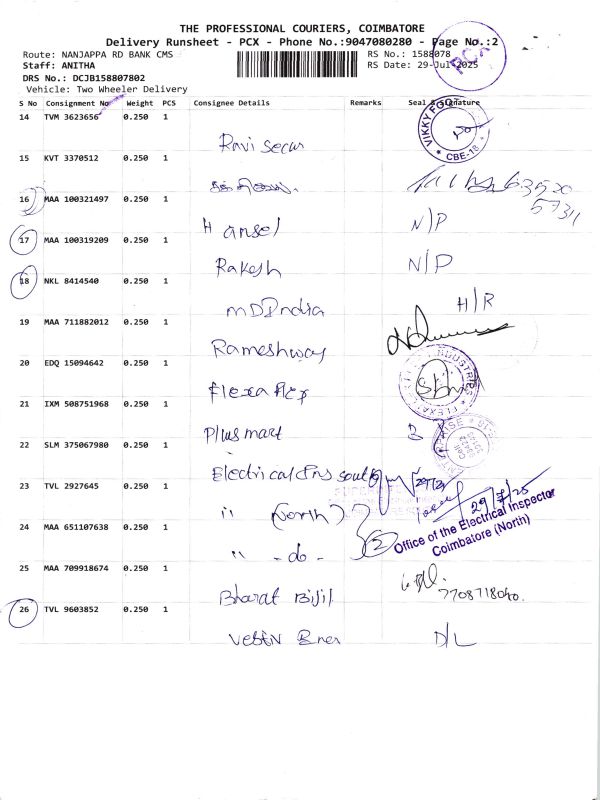 THE PROFESSIONAL COURIERS, COIMBATORE
Delivery Runsheet - PCX - Phone No.:9047080280 - Page No.:2
PCX
Route: NANJAPPA RD BANK CMS
RS No.: 1588078
Staff: ANITHA
RS Date: 29-Jul-2025
DRS No.: DCJB158807802
Vehicle: Two Wheeler Delivery
S No Consignment No Weight PCS Consignee Details Remarks Seal & Signature
14 TVM 3623656 0.250 1
VIKKY FOO
CBE-18
Ravi Secur
15 KVT 3370512 0.250 1
63520
57311
16 MAA 100321497 0.250 1
Hansel N/P
17 MAA 100319209 0.250 1
Rakesh N/P
18 NKL 8414540 0.250 1
MDIndia H/R
19 MAA 711882012 0.250 1
Rameshway
20 EDQ 15094642 0.250 1
INDUSTRIES
Flexaflex
21 IXM 508751968 0.250 1
Plusmart
22 SLM 375067980 0.250 1
Electrical Ins South
23 TVL 2927645 0.250 1
29/7/25
" (North)
24 MAA 651107638 0.250 1
2
Office of the Electrical Inspector
Coimbatore (North)
" - do -
25 MAA 709918674 0.250 1
Bharat Bijil
7708718040.
26 TVL 9603852 0.250 1
D/L